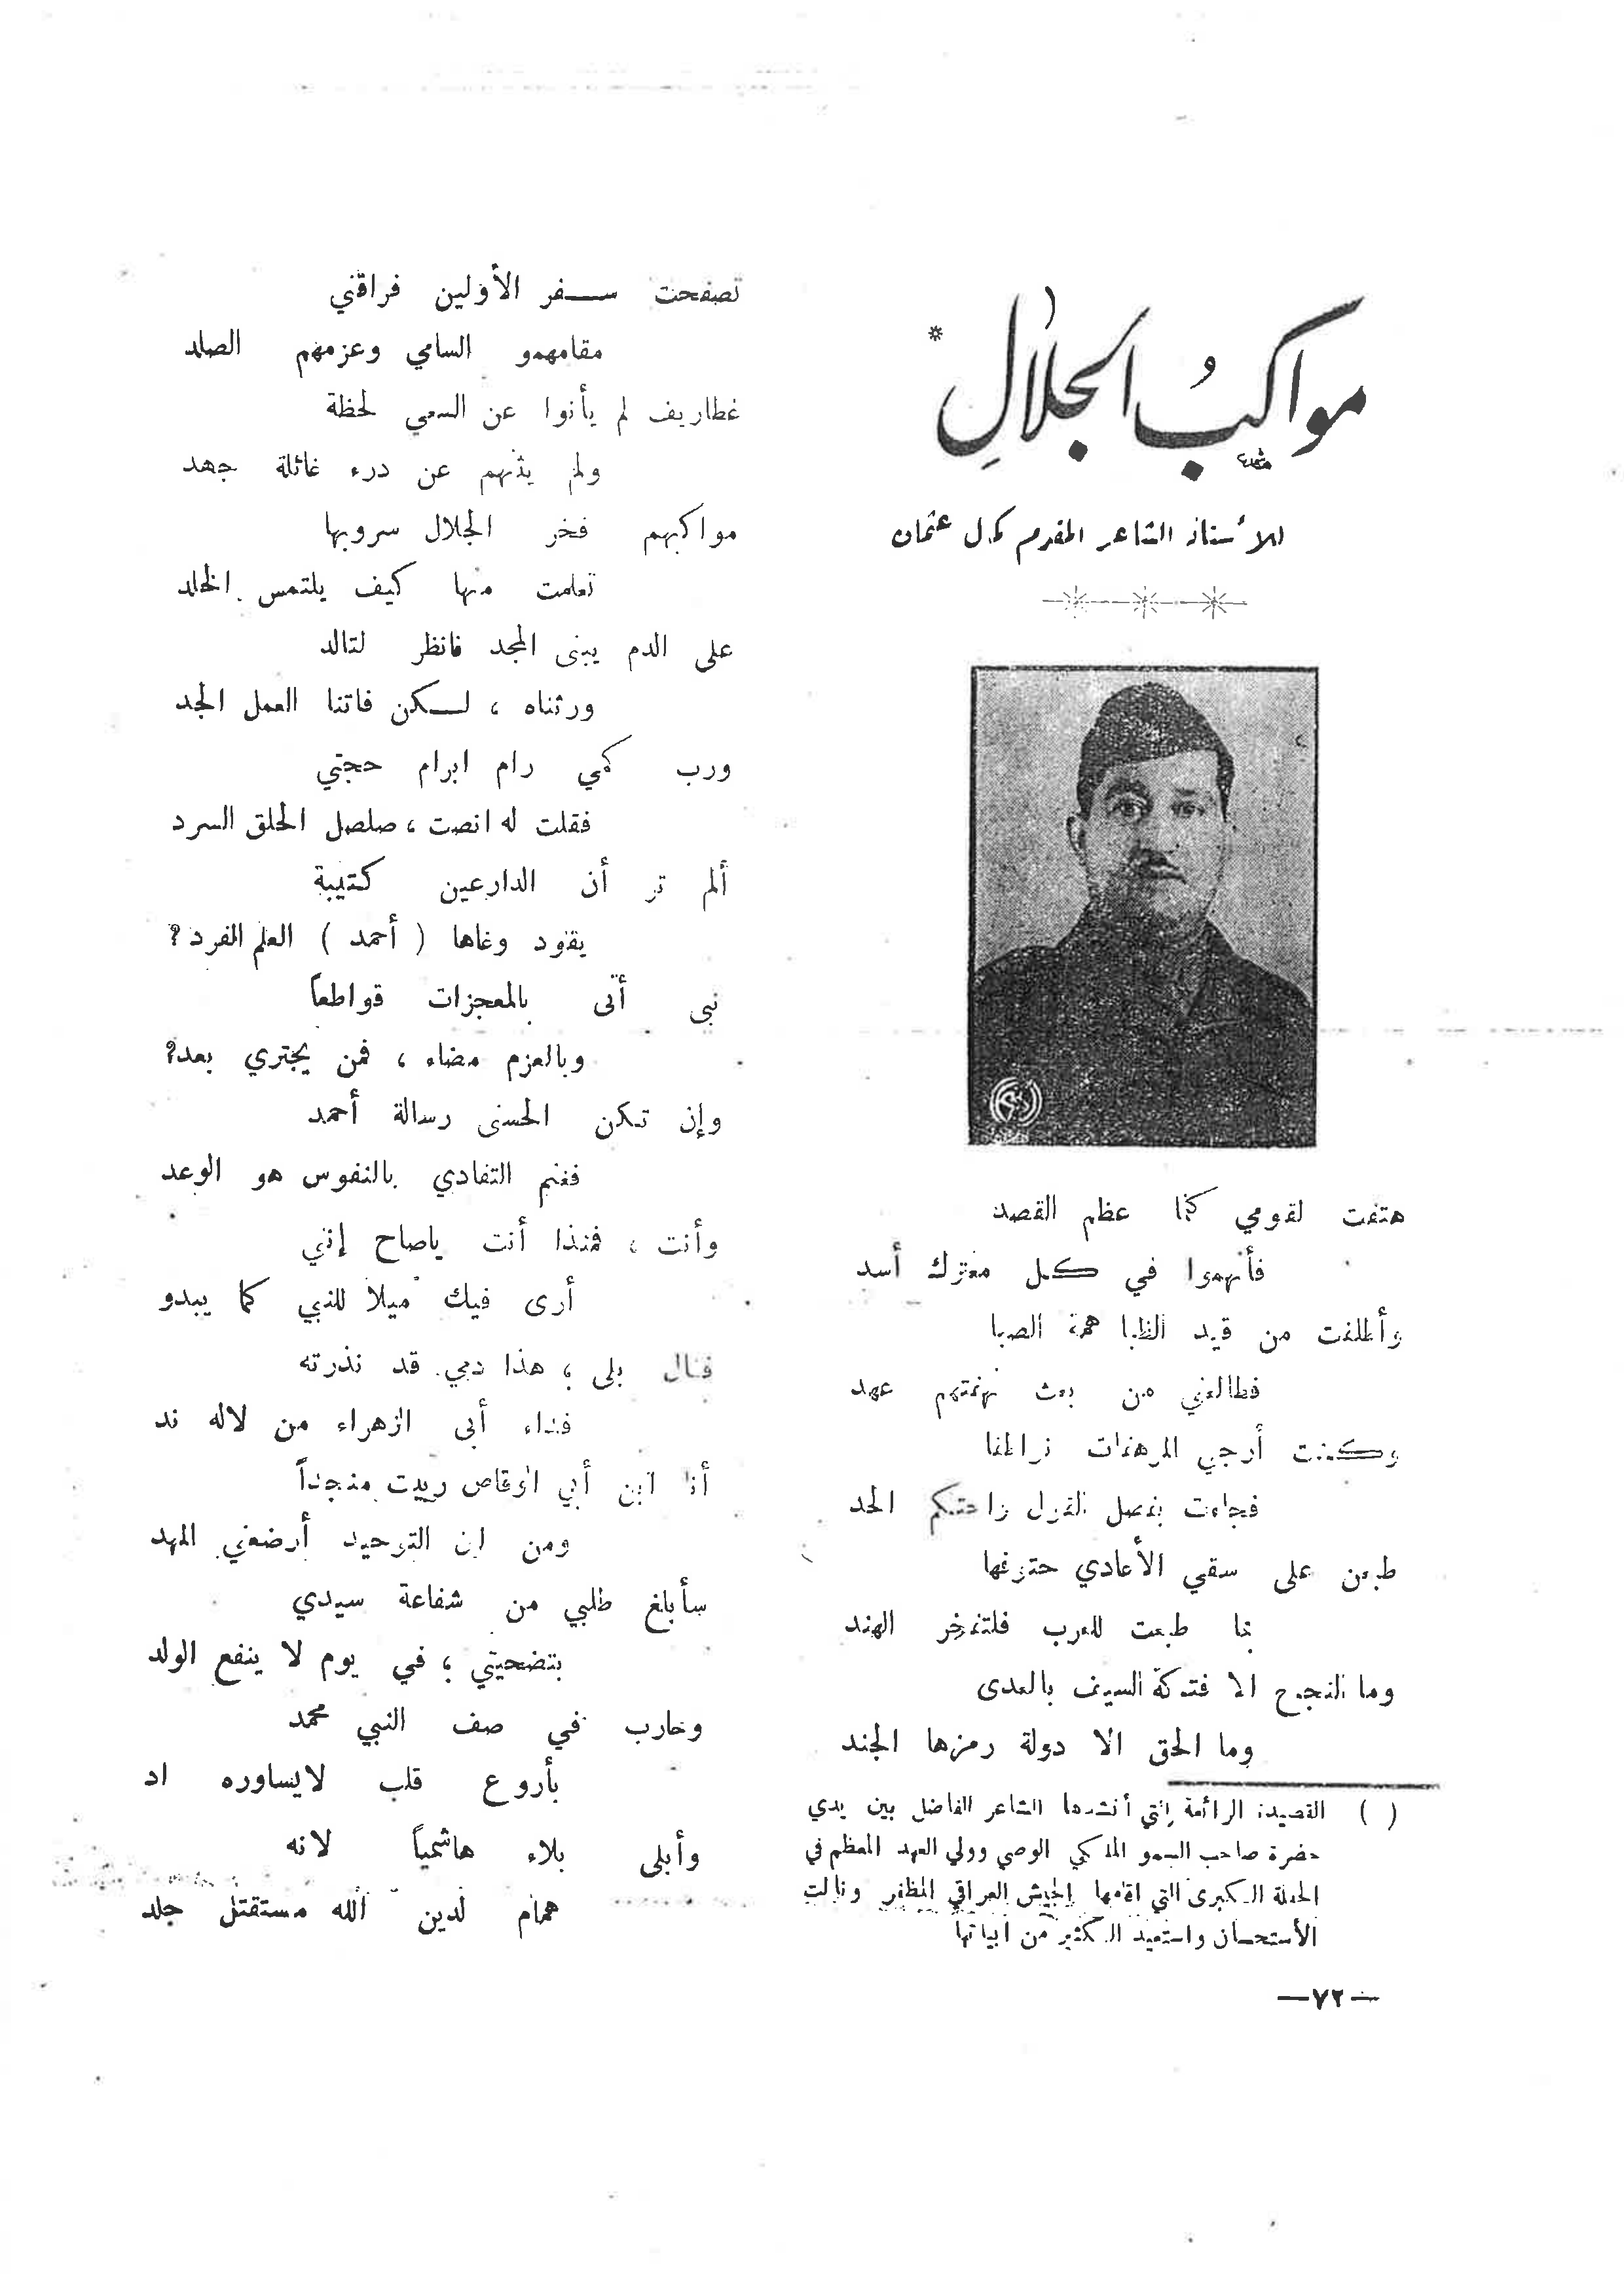 مواكب الجلال *
للأستاذ الشاعر المقدم كمال عثمان
هتفت لقومي كلما عظم القصد
فأنهموا في كل معترك أسد
وأطلقت من قيد الظبا همة الصبا
فطالعني من بعث نهضتهم عهد
وكنت أرجي المرهفات
فجاءت بفصل القول واحتكم الحد
طبعن على سقي الأعادي حتوفها
بما طبعت للعرب فلتفخر الهند
وما النجح الا فتكة السيف بالعدى
وما الحق الا دولة رمزها الجند
( ) القصيدة الرائعة التي أنشدها الشاعر الفاضل بين يدي
حضرة صاحب السمو الملكي الوصي وولي العهد المعظم في
الحفلة الكبرى التي اقامها الجيش العراقي المظفر ونالت
الأستحسان واستعيد الكثير من ابياتها
—٧٢—
تصفحت سفر الأولين فراقني
مقامهمو السامي وعزمهم الصلد
غطاريف لم يأنوا عن السعي لحظة
ولم يثنهم عن درء غائلة جهد
مواكبهم فخر الجلال سروبها
تعلمت منها كيف يلتمس الخلد
على الدم يبنى المجد فانظر لتالد
ورثناه ، لكن فاتنا العمل الجد
ورب كمي رام ابرام حجتي
فقلت له انصت ، صلصل الحلق السرد
ألم تر أن الدارعين كتيبة
يقود وغاها ( أحمد ) العلم الفرد ؟
نبي أتى بالمعجزات قواطعاً
وبالعزم مضاء ، فمن يجتري بعد؟
وإن تكن الحسنى رسالة أحمد
فغنم التفادي بالنفوس هو الوعد
وأنت ، فمنذا أنت ياصاح إنني
أرى فيك ميلا للنبي كما يبدو
فقال بلى ؛ هذا دمي قد نذرته
فداء أبى الزهراء من لاله ند
أنا ابن أبي الوقاص ربيت منجداً
ومن لبن التوحيد أرضعني المهد
سأبلغ طلبي من شفاعة سيدي
بتضحيتي ؛ في يوم لا ينفع الولد
وحارب في صف النبي محمد
بأروع قلب لايساوره اد
وأبلى بلاء هاشمياً لانه
همام لدين الله مستقتل جلد